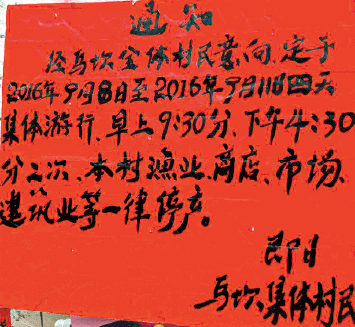 通知
经乌坎全体村民意向,定于
2016年9月8日至2016年9月11日四天
集体游行,早上9:30分、下午4:30
分二次、本村渔业、商店、市场、
建筑业等一律停产。
即日
乌坎集体村民